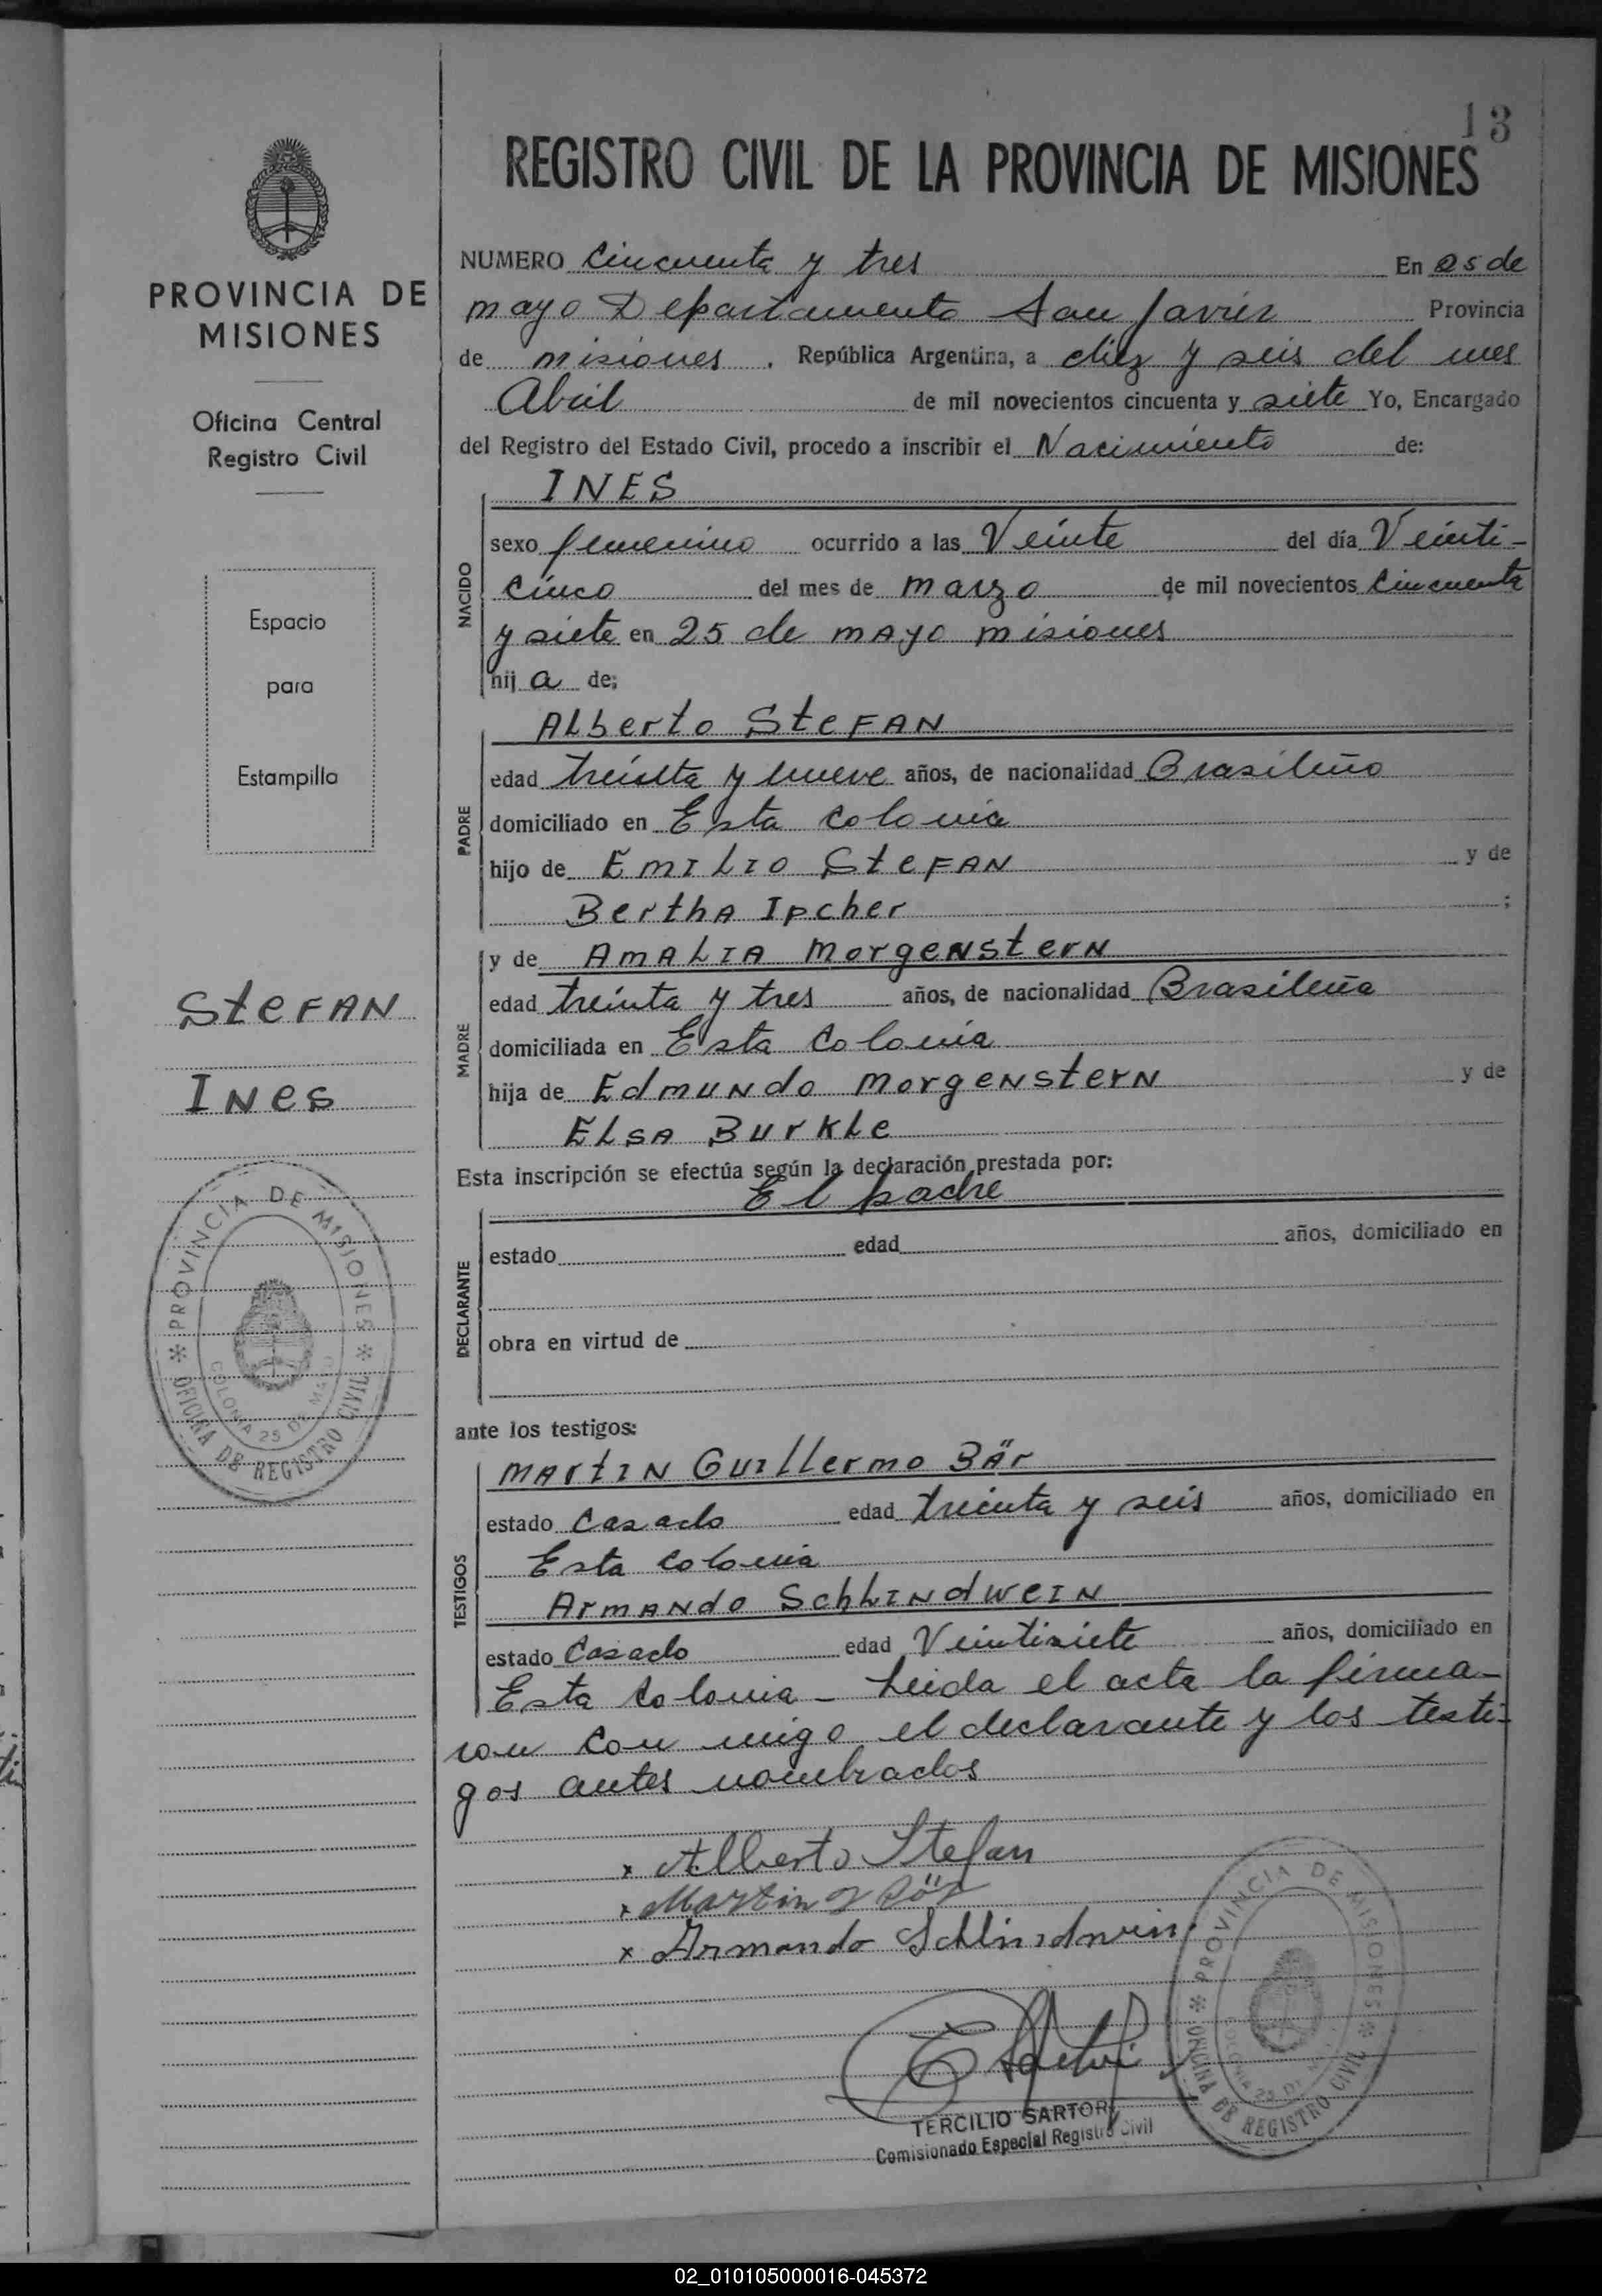 13
REGISTRO CIVIL DE LA PROVINCIA DE MISIONES
PROVINCIA DE
MISIONES
Oficina Central
Registro Civil
Espacio
para
Estampilla
Stefan
Ines
PROVINCIA DE MISIONES
OFICINA DE REGISTRO CIVIL
COLONIA 25 DE MAYO
NUMERO Cincuenta y tres En 25 de
mayo Departamento San Javier Provincia
de misiones. República Argentina, a diez y seis del mes
Abril de mil novecientos cincuenta y siete Yo, Encargado
del Registro del Estado Civil, procedo a inscribir el Nacimiento de:
NACIDO
INES
sexo femenino ocurrido a las Veinte del día Veinti-
cinco del mes de marzo de mil novecientos cincuenta
y siete en 25 de mayo misiones
hij a de;
PADRE
Alberto Stefan
edad treinta y nueve años, de nacionalidad Brasileño
domiciliado en Esta colonia
hijo de Emilio Stefan y de
Bertha Ipcher ;
MADRE
y de Amalia Morgenstern
edad treinta y tres años, de nacionalidad Brasileña
domiciliada en Esta Colonia
hija de Edmundo Morgenstern y de
Elsa Burkle
Esta inscripción se efectúa según la declaración prestada por:
El padre
DECLARANTE
estado edad años, domiciliado en
obra en virtud de
ante los testigos:
TESTIGOS
Martin Guillermo Bär
estado Casado edad treinta y seis años, domiciliado en
Esta colonia
Armando Schlindwein
estado Casado edad Veintisiete años, domiciliado en
Esta Colonia - Leida el acta la firma-
ron con migo el declarante y los testi-
gos antes nombrados
x Alberto Stefan
x Martin G Bär
x Armando Schlindwein
TERCILIO SARTORI
Comisionado Especial Registro Civil
PROVINCIA DE MISIONES
OFICINA DE REGISTRO CIVIL
02_010105000016-045372